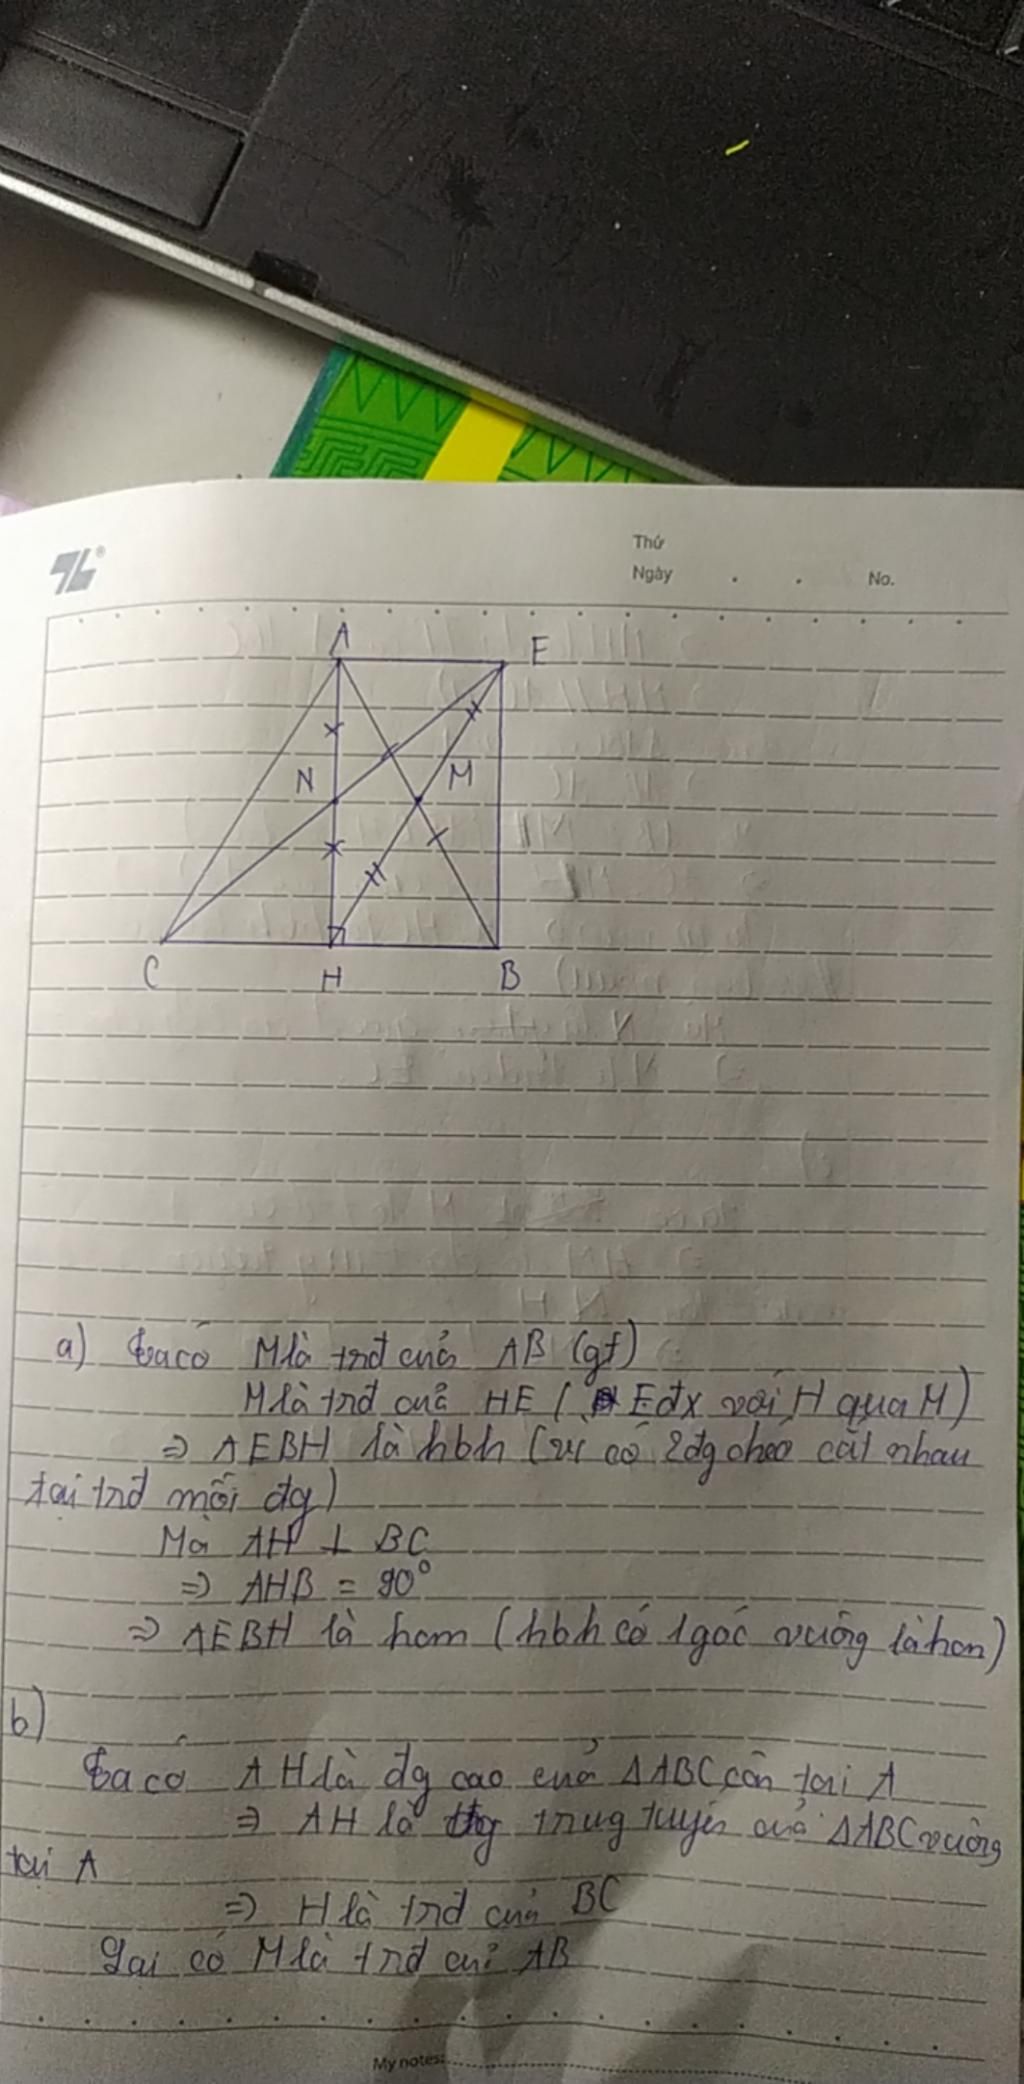 Thứ
Ngày . . No.
A
E
N
M
C
H
B
a) Ta có M là trđ của AB (gt)
M là trđ của HE ( E đx với H qua M)
=> AEBH là hbh (vì có 2 đg chéo cắt nhau
tại trđ mỗi đg)
Mà AH ⊥ BC
=> AHB = 90°
=> AEBH là hcn (hbh có 1 góc vuông là hcn)
b)
Ta có AH là đg cao của ΔABC cân tại A
=> AH là đg trug tuyến của ΔABC vuông
tại A
=> H là trđ của BC
Lại có M là trđ củ AB
My notes: